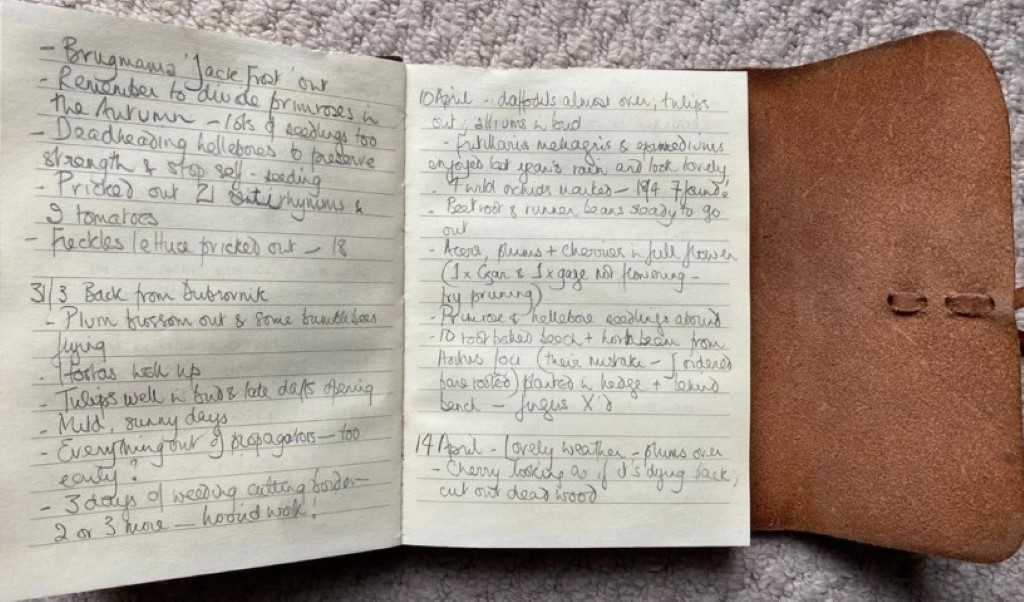 - Brugmansia 'Jack Frost' out
- Remember to divide primroses in
the Autumn - lots of seedlings too
- Deadheading hellebores to preserve
strength & stop self-seeding
- Pricked out 21 antirhynums &
9 tomatoes
- Freckles lettuce pricked out - 18
31/3 Back from Dubrovnik
- Plum blossom out & some bumble bees
flying
- Hostas well up
- Tulips well in bud & late daffs opening
- Mild, sunny days
- Everything out of propagators - too
early?
- 3 days of weeding cutting border -
2 or 3 more - horrid work!
10 April - daffodils almost over, tulips
out, alliums in bud
- Fritillaria meleagris & epimediums
enjoyed last year's rain and look lovely
- 4 wild orchids marked - 
- Beetroot & runner beans ready to go
out
- Acers, plums + cherries in full flower
(1 x Czar & 1 x gage not flowering -
try pruning)
- Primrose & hellebore seedlings abound
- 10 rootballed beech + hornbeam from
(their mistake - I ordered
bare rooted) planted in hedge + behind
bench - fungus X'd
14 April - Lovely weather - plums over
- Cherry looking as if it's dying back,
cut out dead wood